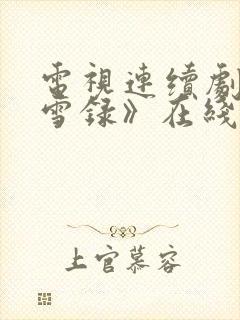 電視連續劇
雪錄》在綫
上官慕容